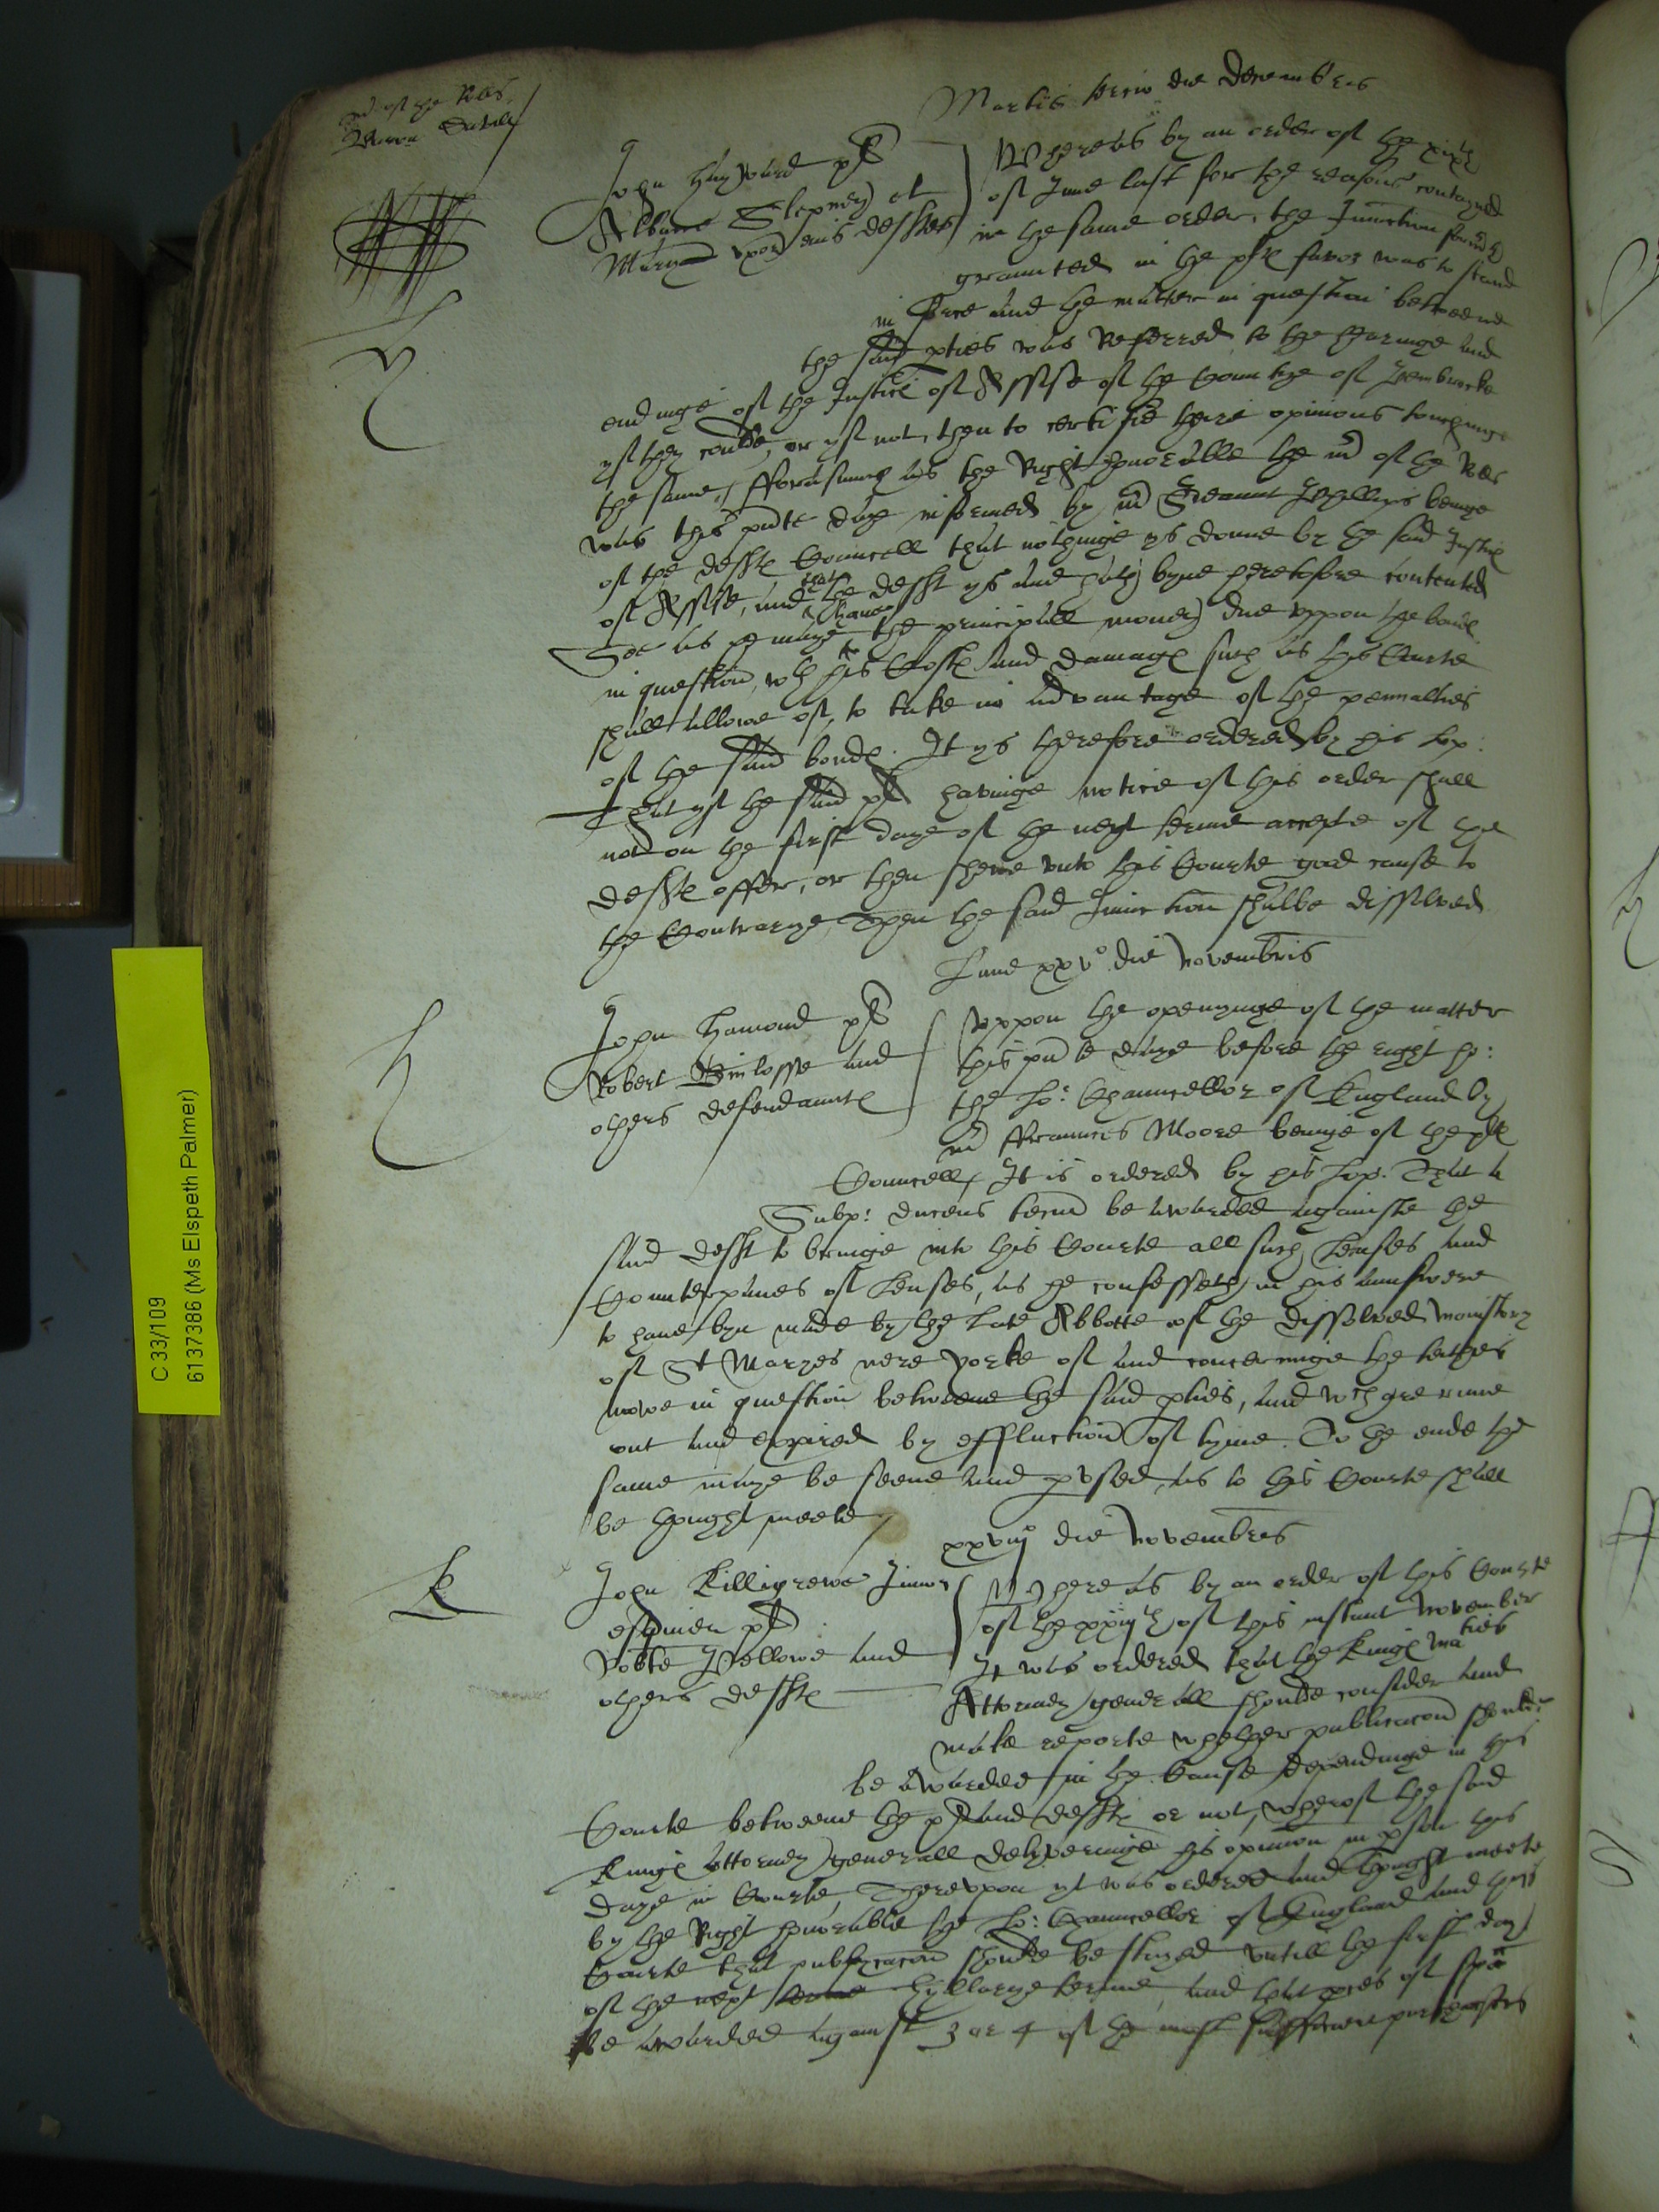 mr of the Rolls
Baron Savile
Martis tercio die Decembris
John Hayward pl
Albane Stepney et
Mary uxor eius defftes
Whereas by an order of the xixth
of June last for the reasons contayned
in the same order, the Iniunction formerly
graunted in the ples favor was to stand
in force and the matter in question betweene
the said pties was Referred to the hearinge and
endinge of the Justices of Assise of the Countye of Pembrooke
yf they coulde, or yf not, then to certifie theire opinions touchinge
the same, fforasmuch as the Right honorable the mr of the Roles
was this pnte daye informed by mr Sreaunt Phillipps beinge
of the deffts Councell that nothinge ys donne by the said Justices
of Assise, and that the defft ys and hath byne heretofore contented
Soe as he maye have the principall money due uppon the bonds
in question, wth his Costs and damages such as this Courte
shall allowe of, to take no advantage of the pennalties
of the said bonds. It ys therefore ordered by his Lop:
That yf the said pl havinge notice of this order shall
not on the first daye of the next terme accepte of the
deffts offer, or then shewe unto this Courte good cause to
the Contrarye Then the said Iniunction shalbe dissolved
Lune xxvo die Novembris
John Hamond pl
Robert Binlosse and
others defendaunts
Uppon the openynge of the matter
this pnte daye before the right ho:
the Lo: Chauncellor of England by
mr ffraunces Moore beinge of the ples
Councell, It is ordered by his Lop: That a
Subp: ducens tecum be awarded againste the
said defft to bringe into this Courte all such Leases and
Counterpanes of Leases, as he confesseth in his aunswere
to have byn made by the late Abbotte of the dissolved monistery
of St Maryes nere Yorke of and concerninge the tithes
nowe in question betweene the said pties, and wch are runne
out and expired by effluction of tyme. To the ende the
same maye be seene and pused, as to this Courte shall
be thought meete
xxviij die Novembris
K
John Killigrewe Junior
esquier pl
Robte Pellowe and
others deffts
Whereas by an order of this Courte
of the xxiijth of this instant November
It was ordered that the Kings maties
Attorney generall shoulde consider and
make reporte whether publicacon shoulde
be awarded in the Cause dependinge in this
Courte betweene the pl and deffts or not, wherof the said
Kings Attorney generall deliveringe his opinion in pson this
daye in Courte, Thereuppon yt was ordered and thought meete
by the Right honorable the Lo: Chauncellor of England and this
Courte that publycacon shoulde be stayed untill the first day
of the next terme Hyllarye terme, and that pces of spa
be awarded against 3 or 4 of the most sufficient purchasers
C 33/109
6137386 (Ms Elspeth Palmer)